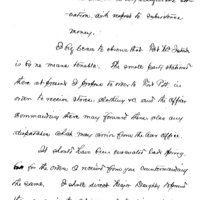 cation, with respect to subsistence
money.
I beg leave to observe that Fort McIntosh
is by no means tenable. The small party stationed
there at present I propose to order to Fort Pitt, in
order to receive stores, clothing &c and the officer
commanding there may forward hence also any
dispatches which may arrive from the War Office.
It should have been evacuated last Spring,
for the orders I received from you countermanding
the same. I shall direct Major Doughty